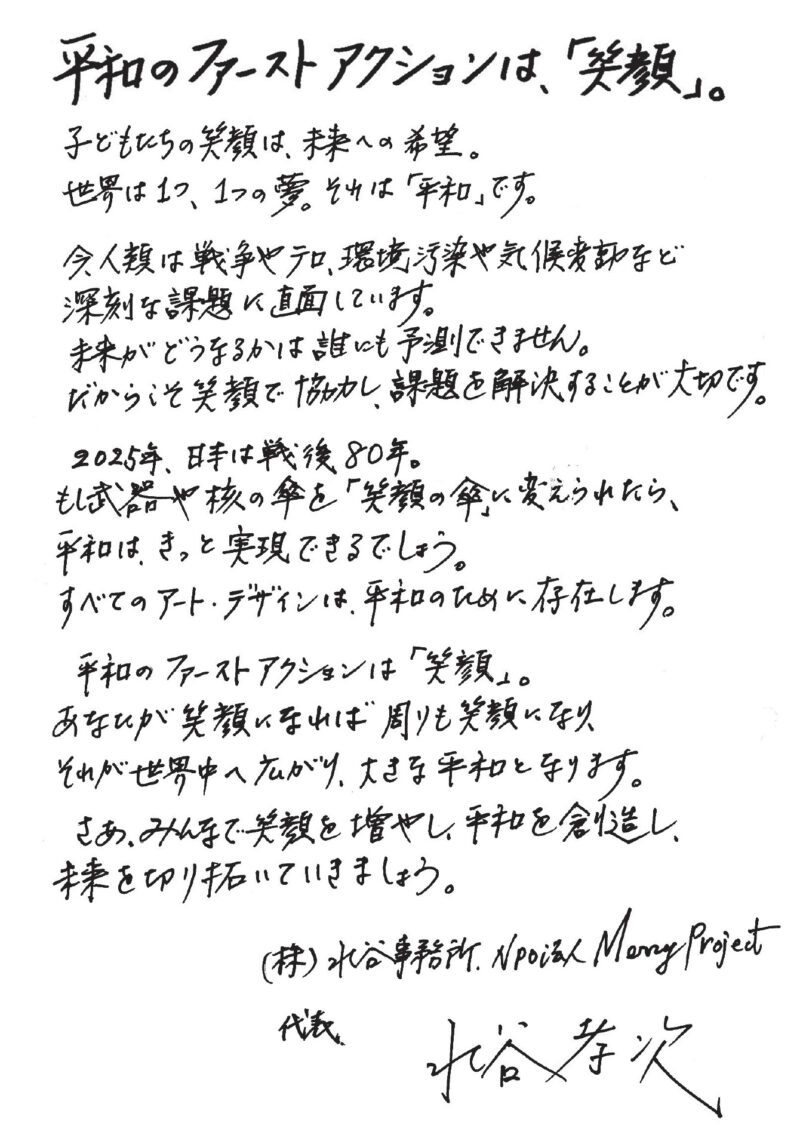 平和のファーストアクションは、「笑顔」。
子どもたちの笑顔は、未来への希望。
世界は1つ、1つの夢。それは「平和」です。
今人類は戦争やテロ、環境汚染や気候変動など
深刻な課題に直面しています。
未来がどうなるかは誰にも予測できません。
だからこそ笑顔で協力し、課題を解決することが大切です。
2025年、日本は戦後80年。
もし武器や核の傘を「笑顔の傘」に変えられたら、
平和は、きっと実現できるでしょう。
すべてのアート・デザインは、平和のために存在します。
平和のファーストアクションは「笑顔」。
あなたが笑顔になれば周りも笑顔になり、
それが世界中へ広がり、大きな平和となります。
さあ、みんなで笑顔を増やし、平和を創造し、
未来を切り拓いていきましょう。
(株)水谷事務所、NPO法人 Merry Project
代表
水谷孝次